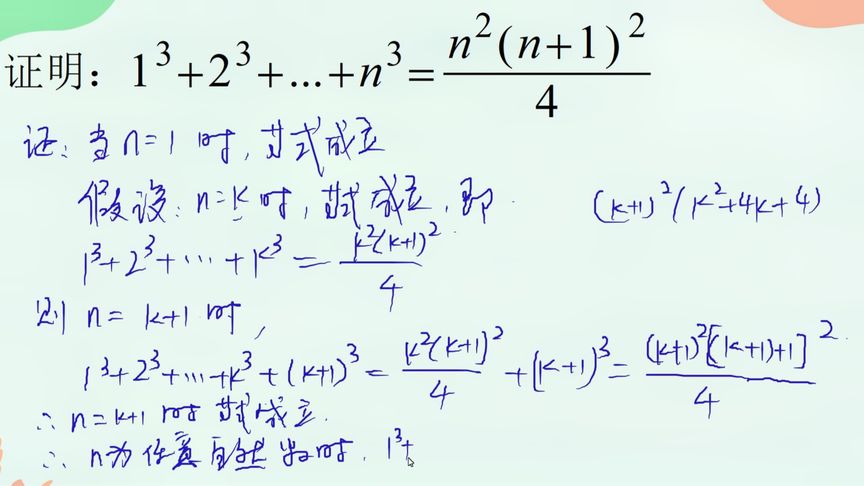 证明：1³+2³+...+n³=n²(n+1)²/4
证：当n=1时，等式成立
假设：n=k时，等式成立，即
(k+1)²(k²+4k+4)
1³+2³+⋯+k³=k²(k+1)²/4
则n=k+1时，
1³+2³+⋯+k³+(k+1)³=k²(k+1)²/4+(k+1)³=(k+1)²[(k+1)+1]²/4
∴n=k+1时等式成立.
∴n为任意自然数时，1³+